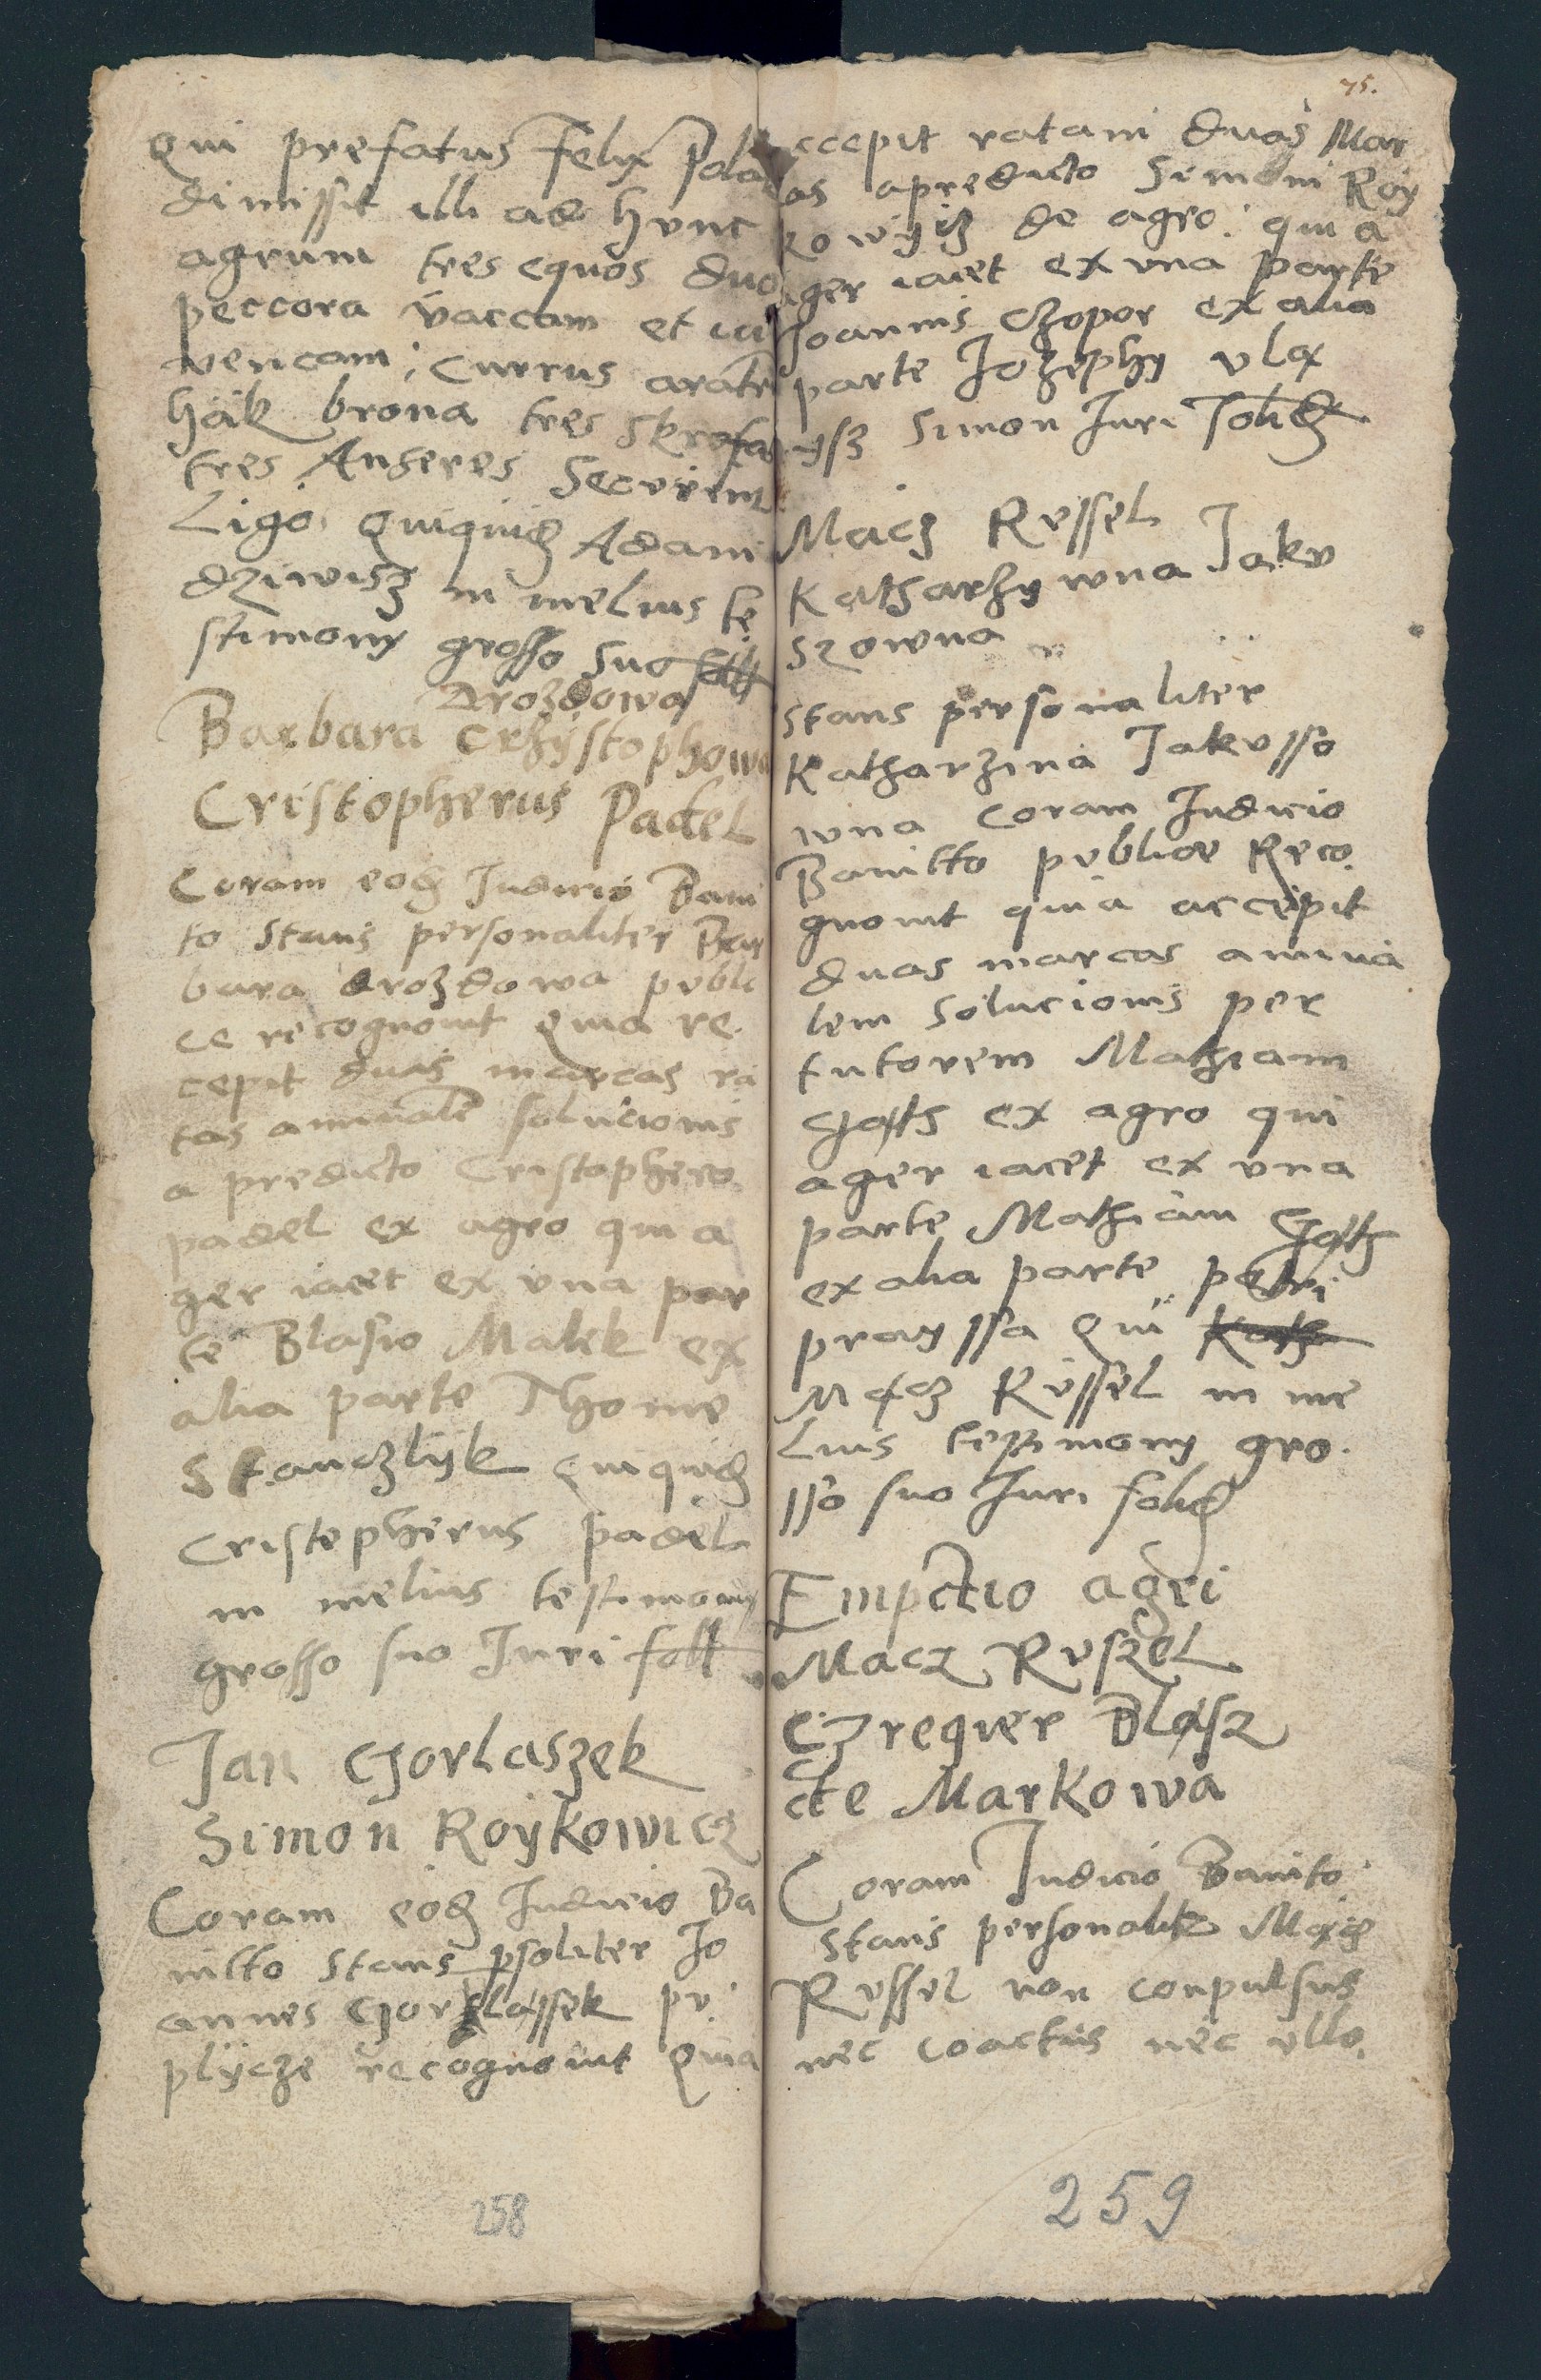 qui prefatus Felix Pola
dimissit illi ad hunc
agrum tres equos duo
peccora vaccam et iu
vencam, currus aratr
hák brona tres skrofas
tres Anseres Securim
Ligo, quiquid Adam
dziwisz in melius te
stimony grosso suo soll
Drozdowa
Barbara Crzystophowa
Cristopherus Padel
Coram eod Judicio Bani
to Stans personaliter Bar
bara drozdowa publi
ce recognouit quia re
cepit duas marcas ra
tas annuale solucionis
a predicto Cristophero
padel ex agro qui a
ger iacet ex una par
te Blasio Malek ex
alia parte Thome
Stanczlyk quiquid
Cristopherus padel
in melius testimony
grosso suo Juri soll
Jan Gorlaszek
Simon Roykowicz
Coram eod Judicio Ba
nitto Stans psoliter Jo
annes Gorlassek pu
plycze recognouit quia
258
75.
ccepit ratam duas Mar
as apredicto Simoni Roy
kowycz de agro qui a
ger iacet ex una parte
Joannis Czopor ex alia
parte Jozephy vlą
ysz Simon Juri solid
Macz Russel
Katharzywna Jaku
szowna
Stans personaliter
Katharzina Jakusso
wna coram Judicio
Banitto publice Reco
gnouit quia accepit
duas marcas annua
lem solucionis per
tutorem Mathiam
ex agro qui
ager iacet ex una
parte Mathiam
ex alia parte petri
prayssa qui Kath
Mącz Russel in me
Lius testimony gro
sso suo Juri solid
Empctio agri
Macz Ruszel
Czreguer Blasz
cte Markowa
Coram Judicio Banito
Stans personalitz Mącz
Russel non conpulsus
nec coactus nec ullo
259